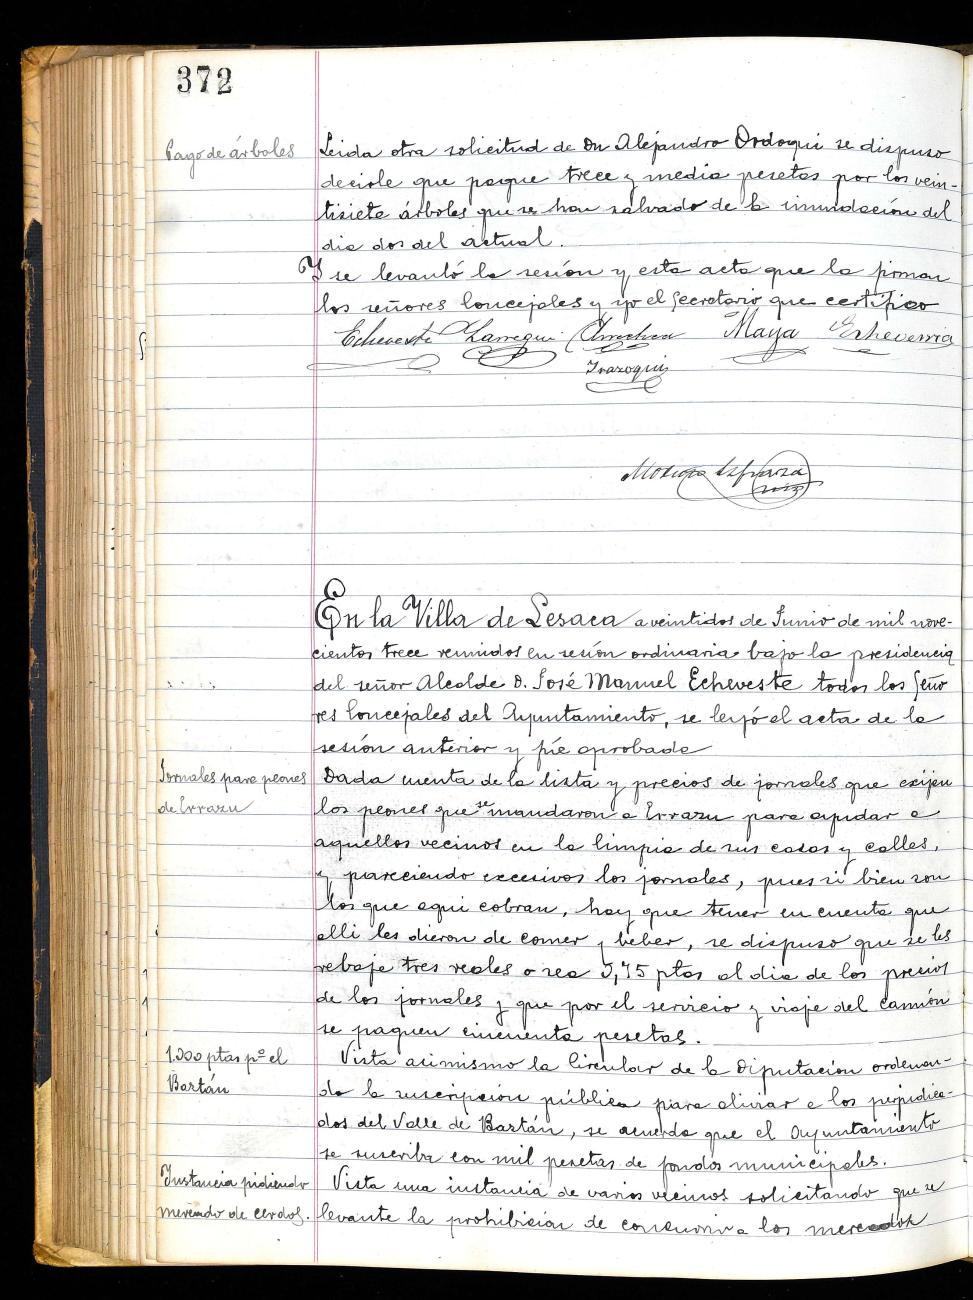 372
Pago de árboles
Leida otra solicitud de Dn Alejandro Ordoqui se dispuso
decirle que pague trece y media pesetas por los vein-
tisiete árboles que se han salvado de la inundación del
dia dos del actual.
Y se levantó la sesión y esta acta que la firman
los señores Concejales y yo el Secretario que certifico
Echeveste Larregui Maya Echeverria
Irazoqui
En la Villa de Lesaca a veintidos de Junio de mil nove-
cientos trece reunidos en sesión ordinaria bajo la presidencia
del señor Alcalde D. José Manuel Echeveste todos los Seño
res Concejales del Ayuntamiento, se leyó el acta de la
sesión anterior y fué aprobada
Jornales para peones
de Errazu
Dada cuenta de la lista y precios de jornales que exijen
los peones que se mandaron a Errazu para ayudar a
aquellos vecinos en la limpia de sus casas y calles,
y pareciendo excesivos los jornales, pues si bien son
los que aqui cobran, hay que tener en cuenta que
alli les dieron de comer y beber, se dispuso que se les
rebaje tres reales o sea 0,75 ptas al dia de los precios
de los jornales y que por el servicio y viaje del camión
se paguen cincuenta pesetas.
1.000 ptas pª el
Baztán
Vista asimismo la Circular de la Diputación ordenan-
do la suscripción pública para aliviar a los perjudica-
dos del Valle de Baztán, se acuerda que el Ayuntamiento
se suscriba con mil pesetas de fondos municipales.
Instancia pidiendo
mercado de cerdos.
Vista una instancia de varios vecinos solicitando que se
levante la prohibición de concurrir a los mercados